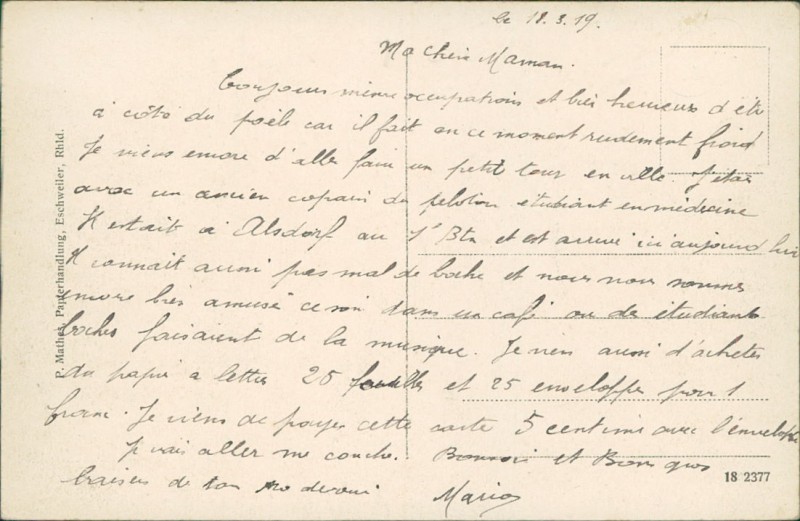 le 18.3.19.
Ma chère Maman.
Toujours même occupations et très heureux d'être
à côté du poêle car il fait en ce moment rudement froid
Je viens encore d'aller faire un petit tour en ville. J'étais
avec un ancien copain du peloton etudiant en médecine
Il estait à Alsdorf au 1r Btn et est arrivé ici aujourd'hui
Il connait aussi pas mal de boche et nous nous sommes
encore très amusé ce soir dans un café ou des étudiants
boches faisaient de la musique. Je viens aussi d'acheter
du papier a lettre 25 feuilles et 25 enveloppe pour 1
franc. Je viens de payer cette carte 5 centime avec l'enveloppe
Je vais aller me coucher. Bonsoir et Bons gros
baisers de ton
P. Mathes, Papierhandlung, Eschweiler, Rhld.
18 2377